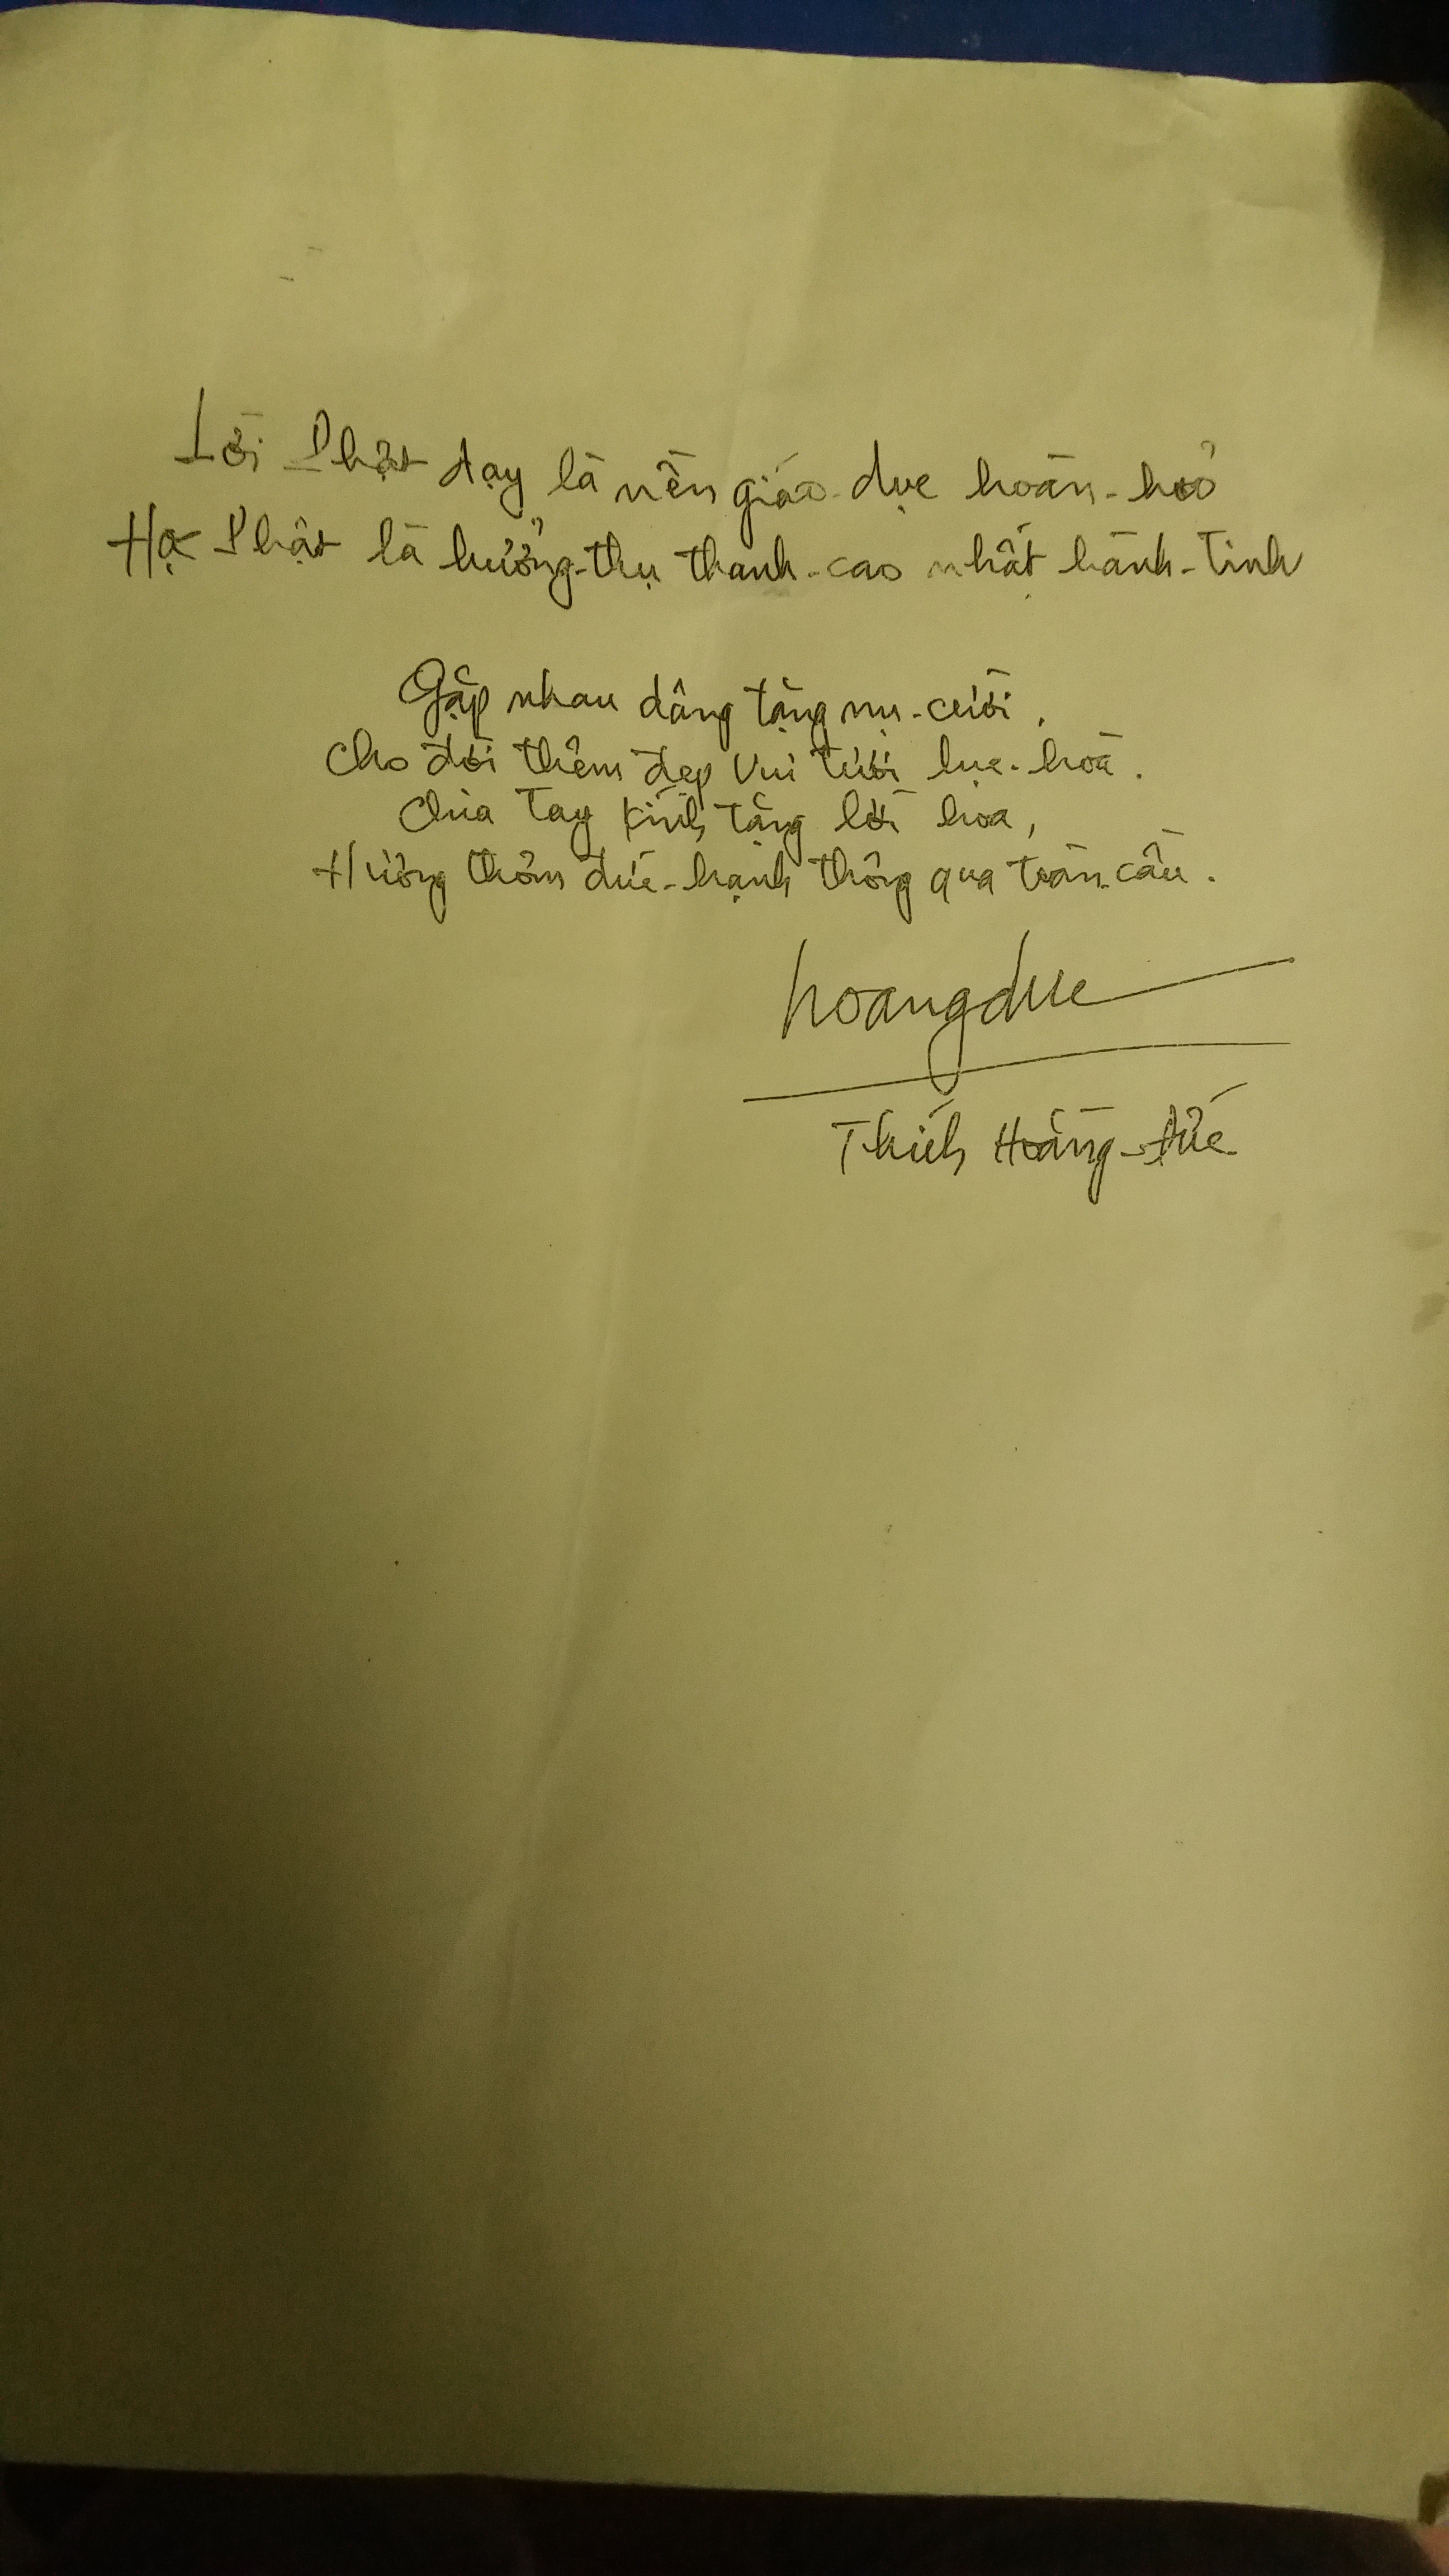 Lời Phật dạy là nền giáo-dục hoàn-hảo
Học Phật là hưởng-thụ thanh-cao nhất hành-tinh
Gặp nhau dâng tặng nụ-cười,
Cho đời thêm đẹp vui tươi lục-hoà.
Chia tay kính tặng lời hoa,
Hương thơm đức-hạnh thông qua toàn-cầu.
hoangduc
Thích Hoàng-Đức